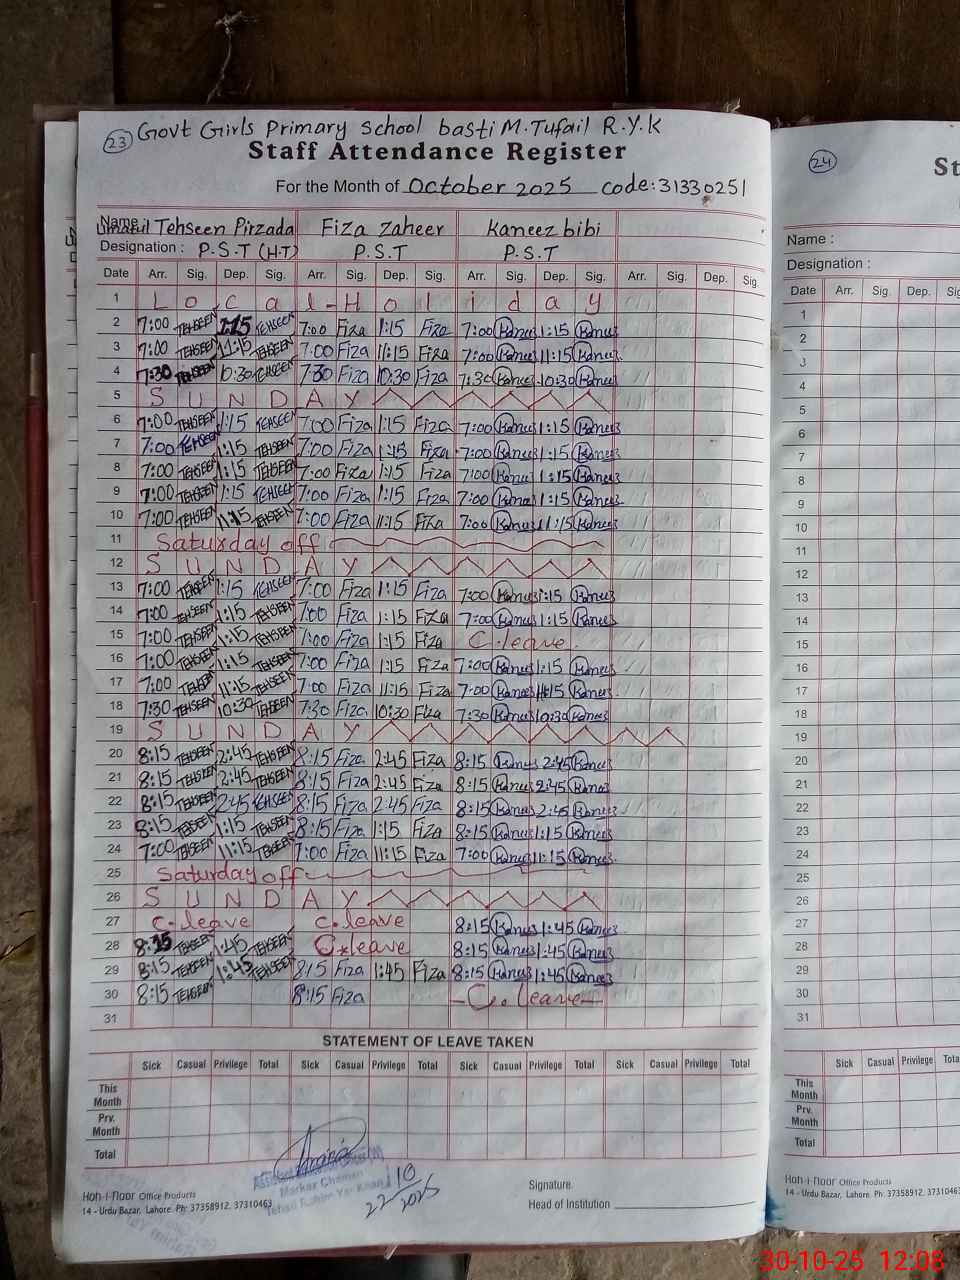 23 Govt Girls Primary School basti M.Tufail R.Y.K
Staff Attendance Register
For the Month of October 2025 code:31330251
Name Tehseen Pirzada Fiza Zaheer Kaneez bibi
Designation : P.S.T (H.T) P.S.T P.S.T
Date Arr. Sig. Dep. Sig. Arr. Sig. Dep. Sig. Arr. Sig. Dep. Sig. Arr. Sig. Dep. Sig.
1 Local-Holiday
2 7:00 TEHSEEN 1:15 TEHSEEN 7:00 Fiza 1:15 Fiza 7:00 Kaneez 1:15 Kaneez
3 7:00 TEHSEEN 11:15 TEHSEEN 7:00 Fiza 11:15 Fiza 7:00 Kaneez 11:15 Kaneez
4 7:30 TEHSEEN 10:30 TEHSEEN 7:30 Fiza 10:30 Fiza 7:30 Kaneez 10:30 Kaneez
5 SUNDAY
6 7:00 TEHSEEN 1:15 TEHSEEN 7:00 Fiza 1:15 Fiza 7:00 Kaneez 1:15 Kaneez
7 7:00 TEHSEEN 1:15 TEHSEEN 7:00 Fiza 1:15 Fiza 7:00 Kaneez 1:15 Kaneez
8 7:00 TEHSEEN 1:15 TEHSEEN 7:00 Fiza 1:15 Fiza 7:00 Kaneez 1:15 Kaneez
9 7:00 TEHSEEN 1:15 TEHSEEN 7:00 Fiza 1:15 Fiza 7:00 Kaneez 1:15 Kaneez
10 7:00 TEHSEEN 11:15 TEHSEEN 7:00 Fiza 11:15 Fiza 7:00 Kaneez 11:15 Kaneez
11 Saturday off
12 SUNDAY
13 7:00 TEHSEEN 1:15 TEHSEEN 7:00 Fiza 1:15 Fiza 7:00 Kaneez 1:15 Kaneez
14 7:00 TEHSEEN 1:15 TEHSEEN 7:00 Fiza 1:15 Fiza 7:00 Kaneez 1:15 Kaneez
15 7:00 TEHSEEN 1:15 TEHSEEN 7:00 Fiza 1:15 Fiza C.leave
16 7:00 TEHSEEN 1:15 TEHSEEN 7:00 Fiza 1:15 Fiza 7:00 Kaneez 1:15 Kaneez
17 7:00 TEHSEEN 11:15 TEHSEEN 7:00 Fiza 11:15 Fiza 7:00 Kaneez 11:15 Kaneez
18 7:30 TEHSEEN 10:30 TEHSEEN 7:30 Fiza 10:30 Fiza 7:30 Kaneez 10:30 Kaneez
19 SUNDAY
20 8:15 TEHSEEN 2:45 TEHSEEN 8:15 Fiza 2:45 Fiza 8:15 Kaneez 2:45 Kaneez
21 8:15 TEHSEEN 2:45 TEHSEEN 8:15 Fiza 2:45 Fiza 8:15 Kaneez 2:45 Kaneez
22 8:15 TEHSEEN 2:45 TEHSEEN 8:15 Fiza 2:45 Fiza 8:15 Kaneez 2:45 Kaneez
23 8:15 TEHSEEN 1:15 TEHSEEN 8:15 Fiza 1:15 Fiza 8:15 Kaneez 1:15 Kaneez
24 7:00 TEHSEEN 11:15 TEHSEEN 7:00 Fiza 11:15 Fiza 7:00 Kaneez 11:15 Kaneez
25 Saturday off
26 SUNDAY
27 C.leave C.leave 8:15 Kaneez 1:45 Kaneez
28 8:15 TEHSEEN 1:45 TEHSEEN C.leave 8:15 Kaneez 1:45 Kaneez
29 8:15 TEHSEEN 1:45 TEHSEEN 8:15 Fiza 1:45 Fiza 8:15 Kaneez 1:45 Kaneez
30 8:15 TEHSEEN 8:15 Fiza C.leave
31
STATEMENT OF LEAVE TAKEN
Sick Casual Privilege Total Sick Casual Privilege Total Sick Casual Privilege Total Sick Casual Privilege Total
This Month
Prv. Month
Total
Markaz Chaman
Tehsil Rahim Yar Khan
22/10/2025
Signature.
Head of Institution
Hoh-i-noor Office Products
14 - Urdu Bazar, Lahore. Ph: 37358912, 37310463
24
St
Name :
Designation :
Date Arr. Sig. Dep. Sig.
1
2
3
4
5
6
7
8
9
10
11
12
13
14
15
16
17
18
19
20
21
22
23
24
25
26
27
28
29
30
31
Sick Casual Privilege Tota
This Month
Prv. Month
Total
Hoh-i-noor Office Products
14 - Urdu Bazar, Lahore. Ph: 37358912, 3731
30-10-25 12:08